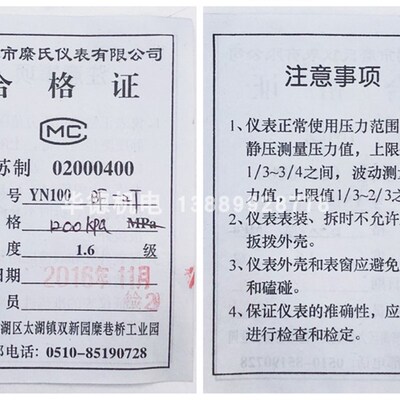 市糜氏仪表有限公司
合格证
MC
苏制 02000400
号 YN100
格 1200kpa MPa
度 1.6 级
日期 2016年11月
员 检2
湖区太湖镇双新园糜巷桥工业园
部电话：0510-85190728
注意事项
1、仪表正常使用压力范围
静压测量压力值，上限
1/3~3/4之间，波动测
力值，上限值1/3~2/3之
2、仪表表装、拆时不允许
扳拨外壳。
3、仪表外壳和表窗应避免
和磕碰。
4、保证仪表的准确性，应
进行检查和检定。
华锦机电 13889528776